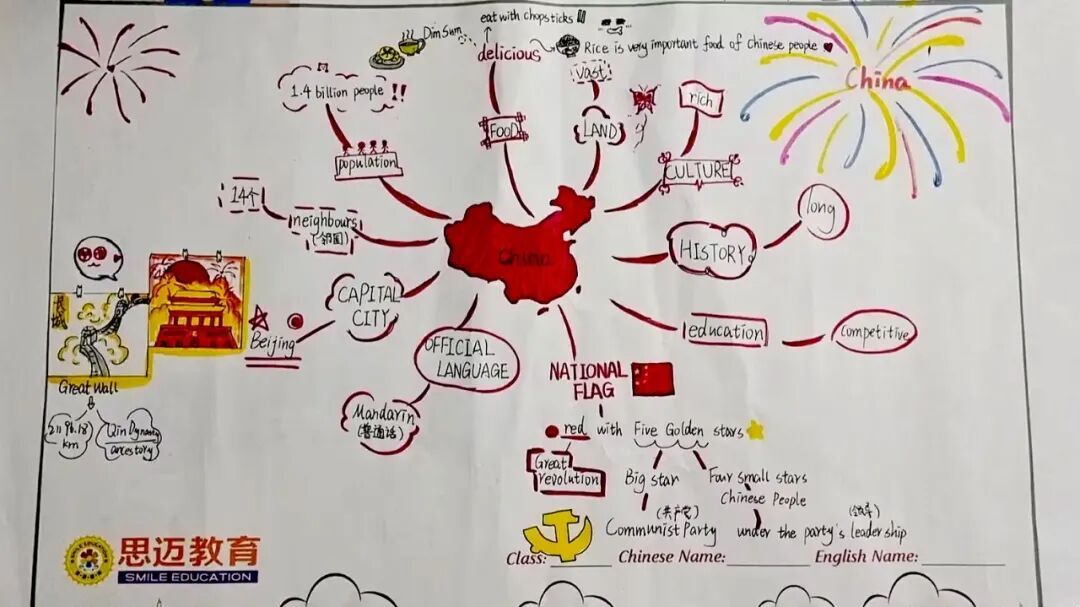 eat with chopsticks
Dim Sum
delicious
Rice is very important food of Chinese people
vast
China
1.4 billion people !!
rich
FOOD
LAND
population
CULTURE
14个
neighbours
(邻国)
long
HISTORY
China
CAPITAL
CITY
education
competitive
Beijing
长城
OFFICIAL
LANGUAGE
NATIONAL
FLAG
Great Wall
Mandarin
(普通话)
21196.18
km
Qin Dynasty
ancestory
red with Five Golden stars
Great
revolution
Big star
Four small stars
Chinese People
(共产党)
(领导)
Communist Party
under the party's leadership
思迈教育
SMILE EDUCATION
Class:
Chinese Name:
English Name: